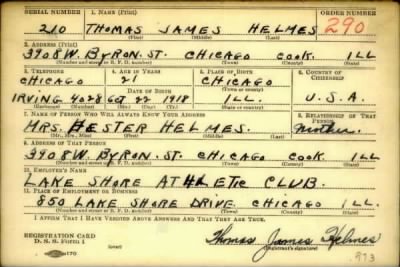 SERIAL NUMBER 1. NAME (Print) ORDER NUMBER
210 THOMAS JAMES HELMES 290
(First) (Middle) (Last)
2. ADDRESS (Print)
3908 W. BYRON. ST. CHICAGO COOK. ILL
(Number and street or R. F. D. number) (Town) (County) (State)
3. TELEPHONE 4. AGE IN YEARS 5. PLACE OF BIRTH 6. COUNTRY OF CITIZENSHIP
CHICAGO 21 CHICAGO
DATE OF BIRTH (Town or county)
IRVING 4028 OCT 22 1918 ILL. U.S.A.
(Exchange) (Number) (Mo.) (Day) (Yr.) (State or country)
7. NAME OF PERSON WHO WILL ALWAYS KNOW YOUR ADDRESS 8. RELATIONSHIP OF THAT PERSON
MRS. HESTER HELMES. Mother.
(Mr., Mrs., Miss) (First) (Middle) (Last)
9. ADDRESS OF THAT PERSON
3908 W. BYRON. ST. CHICAGO COOK ILL
(Number and street or R. F. D. number) (Town) (County) (State)
10. EMPLOYER'S NAME
LAKE SHORE ATHLETIC CLUB.
11. PLACE OF EMPLOYMENT OR BUSINESS
850 LAKE SHORE DRIVE. CHICAGO ILL.
(Number and street or R. F. D. number) (Town) (County) (State)
I AFFIRM THAT I HAVE VERIFIED ABOVE ANSWERS AND THAT THEY ARE TRUE.
REGISTRATION CARD
D. S. S. Form 1 Thomas James Helmes
(Registrant's signature)